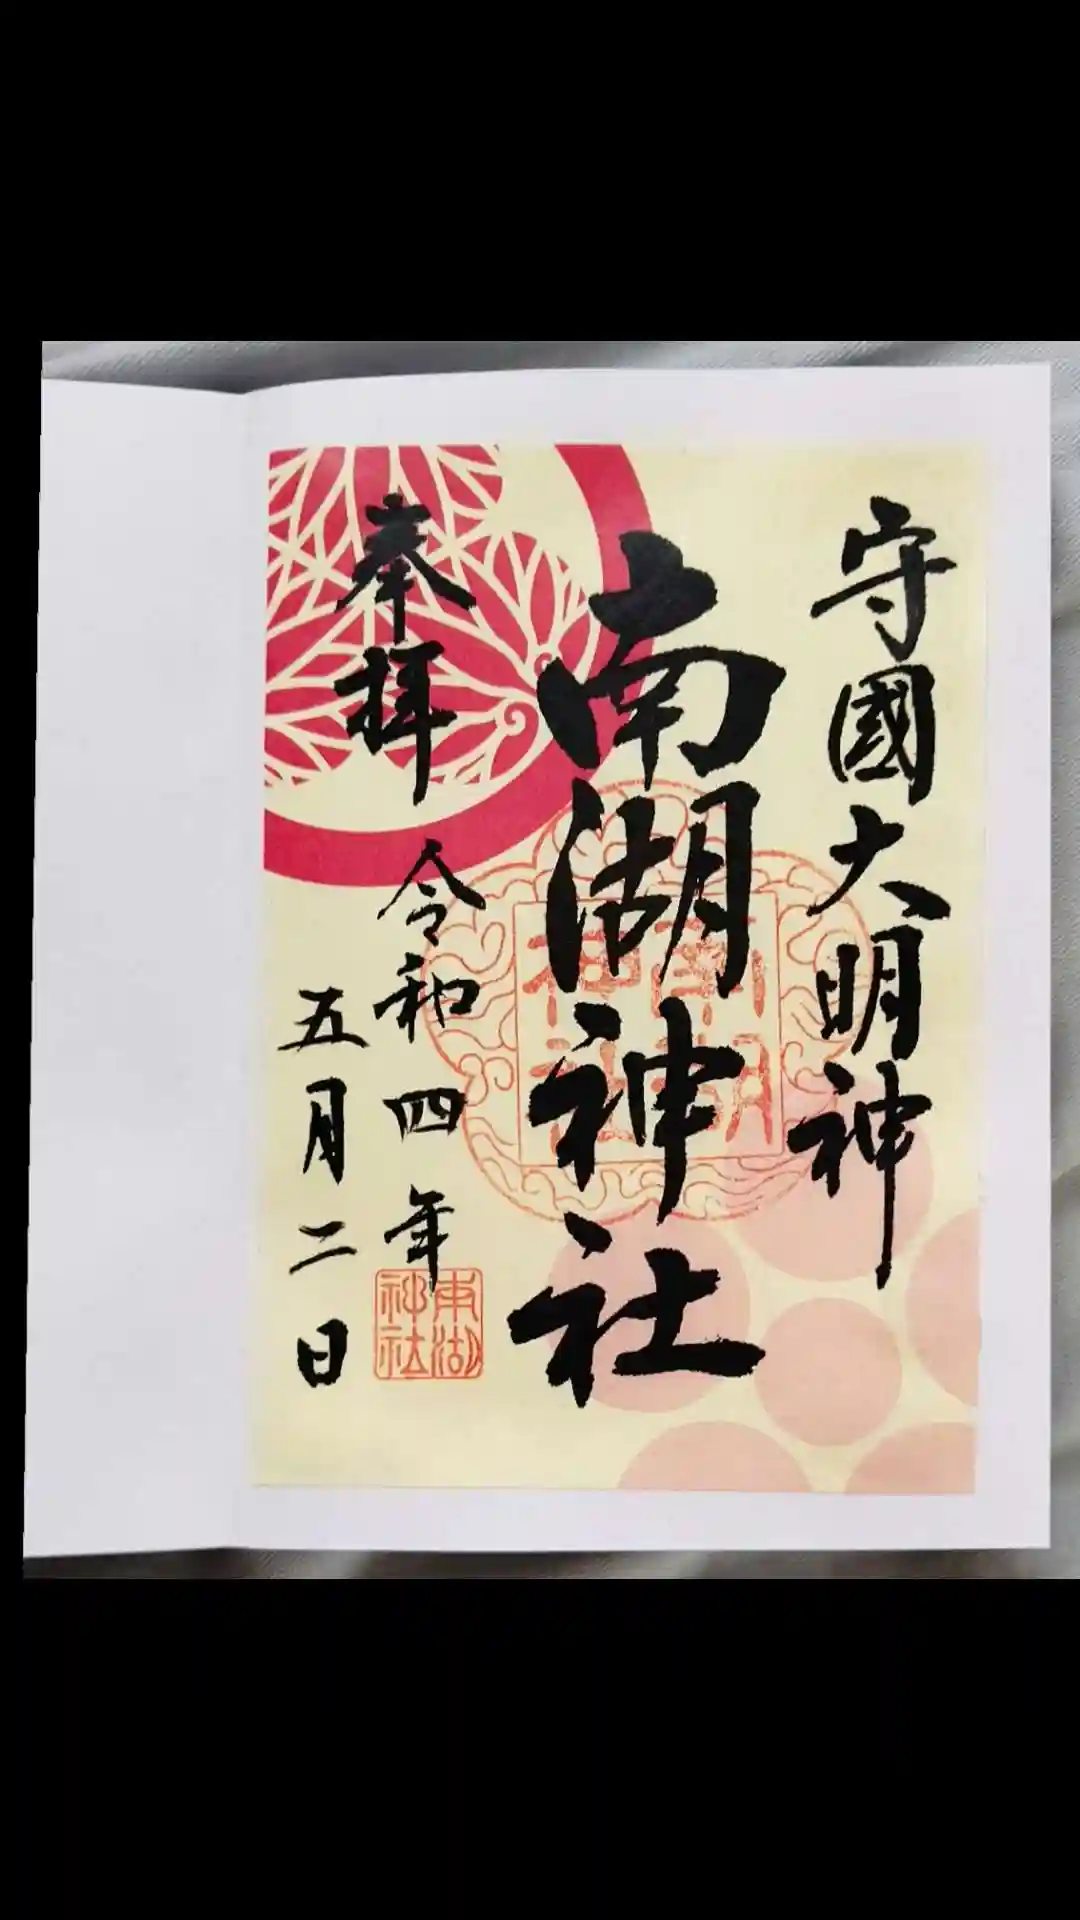 守國大明神
南湖神社
奉拝
令和四年
五月二日
南湖
神社
南湖
神社